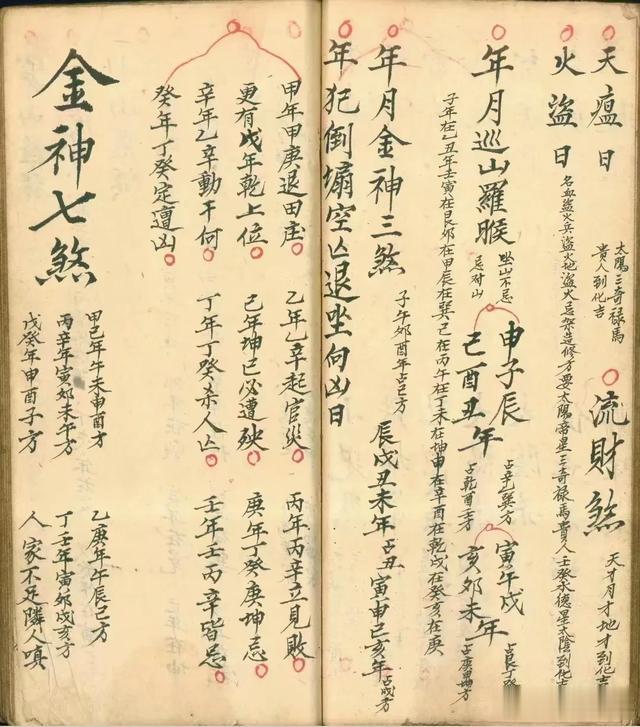 天瘟日
太陽三奇禄馬
貴人到化吉
流財煞
天才月才地才到化吉
火盜日
名血盜火兵盜火地盜火忌架造修方要太陽帝星三奇禄馬貴人壬癸水德星太陰到化吉
年月巡山羅睺
坐山不忌
忌对山
申子辰
占辛乙巽方
寅午戌
占艮丁癸
巳酉丑年
占乾酉壬方
亥卯未年
占庚甲坤方
子年在乙丑年壬寅在艮卯在甲辰在巽巳在丙午在丁未在坤申在辛酉在乾戌在癸亥在庚
年月金神三煞
子午卯酉年占巳方
辰戌丑未年占丑
寅申巳亥年占戌方
年犯倒塌空亡退坐向凶日
甲年甲庚退田庄
乙年乙辛起官災
丙年丙辛立見敗
更有戊年乾上位
己年坤已必遭殃
庚年丁癸庚坤忌
辛年乙辛動干何
丁年丁癸亦人亡
壬年壬丙辛皆忌
癸年丁癸定遭凶
金神七煞
甲己年午未申酉才
乙庚年午辰巳方
丙辛年寅卯未午方
丁壬年寅卯戌亥方
戊癸年申酉子方
人家不足隣人嗔